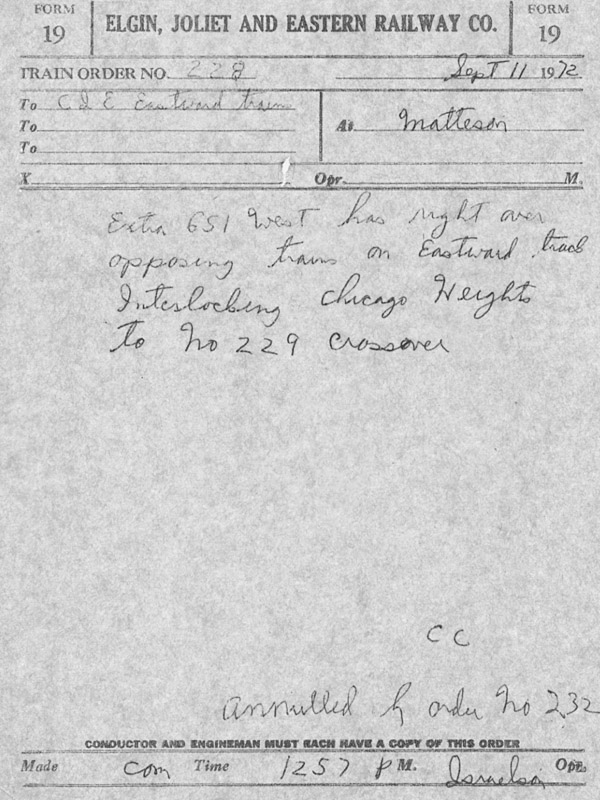 FORM 19
ELGIN, JOLIET AND EASTERN RAILWAY CO.
FORM 19
TRAIN ORDER NO. 228 Sept 11 1972
To C & E Eastward train
To
To
At Matteson
X Opr. M.
Extra 651 West has right over
opposing trains on Eastward track
Interlocking Chicago Heights
to No 229 crossover
CC
annulled by order No 232
CONDUCTOR AND ENGINEMAN MUST EACH HAVE A COPY OF THIS ORDER
Made com Time 1257 P M. Israelson Opr.